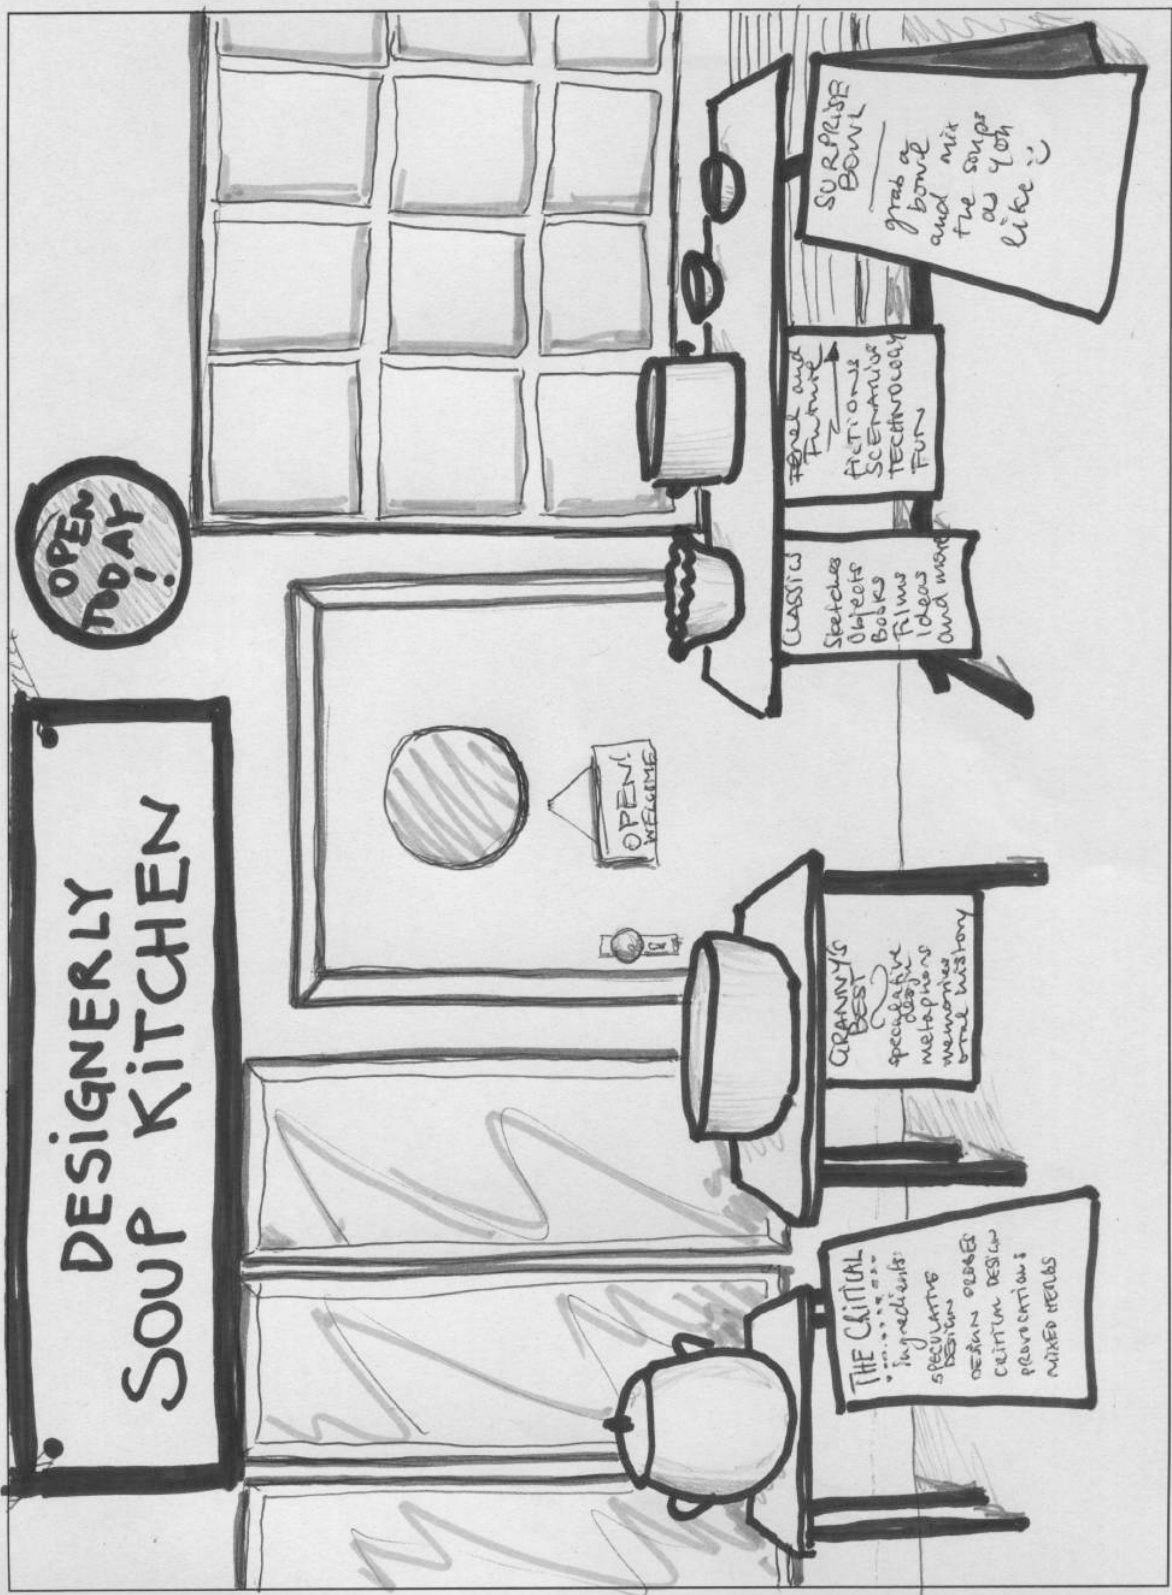 DESIGNERLY
SOUP KITCHEN
OPEN
TODAY
!
OPEN!
WELCOME
THE CRITICAL
ingredients:
SPECULATIVE
DESIGN
DESIGN PROBES
CRITICAL DESIGN
PROVOCATIONS
MIXED HERBS
GRANNY'S
BEST
speculative
design
metaphors
memories
oral history
CLASSICS
Sketches
Objects
Books
Films
Ideas
and more
and
Future
FICTIONS
SCENARIOS
TECHNOLOGY
FUN
SURPRISE
BOWL
grab a
bowl
and mix
the soups
as you
like